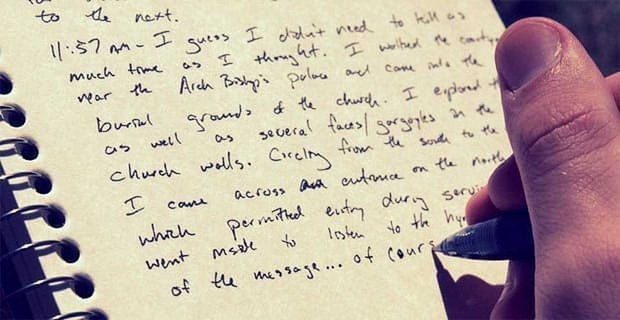 to the next.
11:57 AM - I guess I didn't need to kill as
much time as I thought. I walked the
near the Arch Bishop's palace and came into the
burial grounds of the church. I explored
as well as several faces/gargoyles in the
church walls. Circling from the south to the
I came across an entrance on the north
which permitted entry during
went inside to listen to the
of the message... of cours